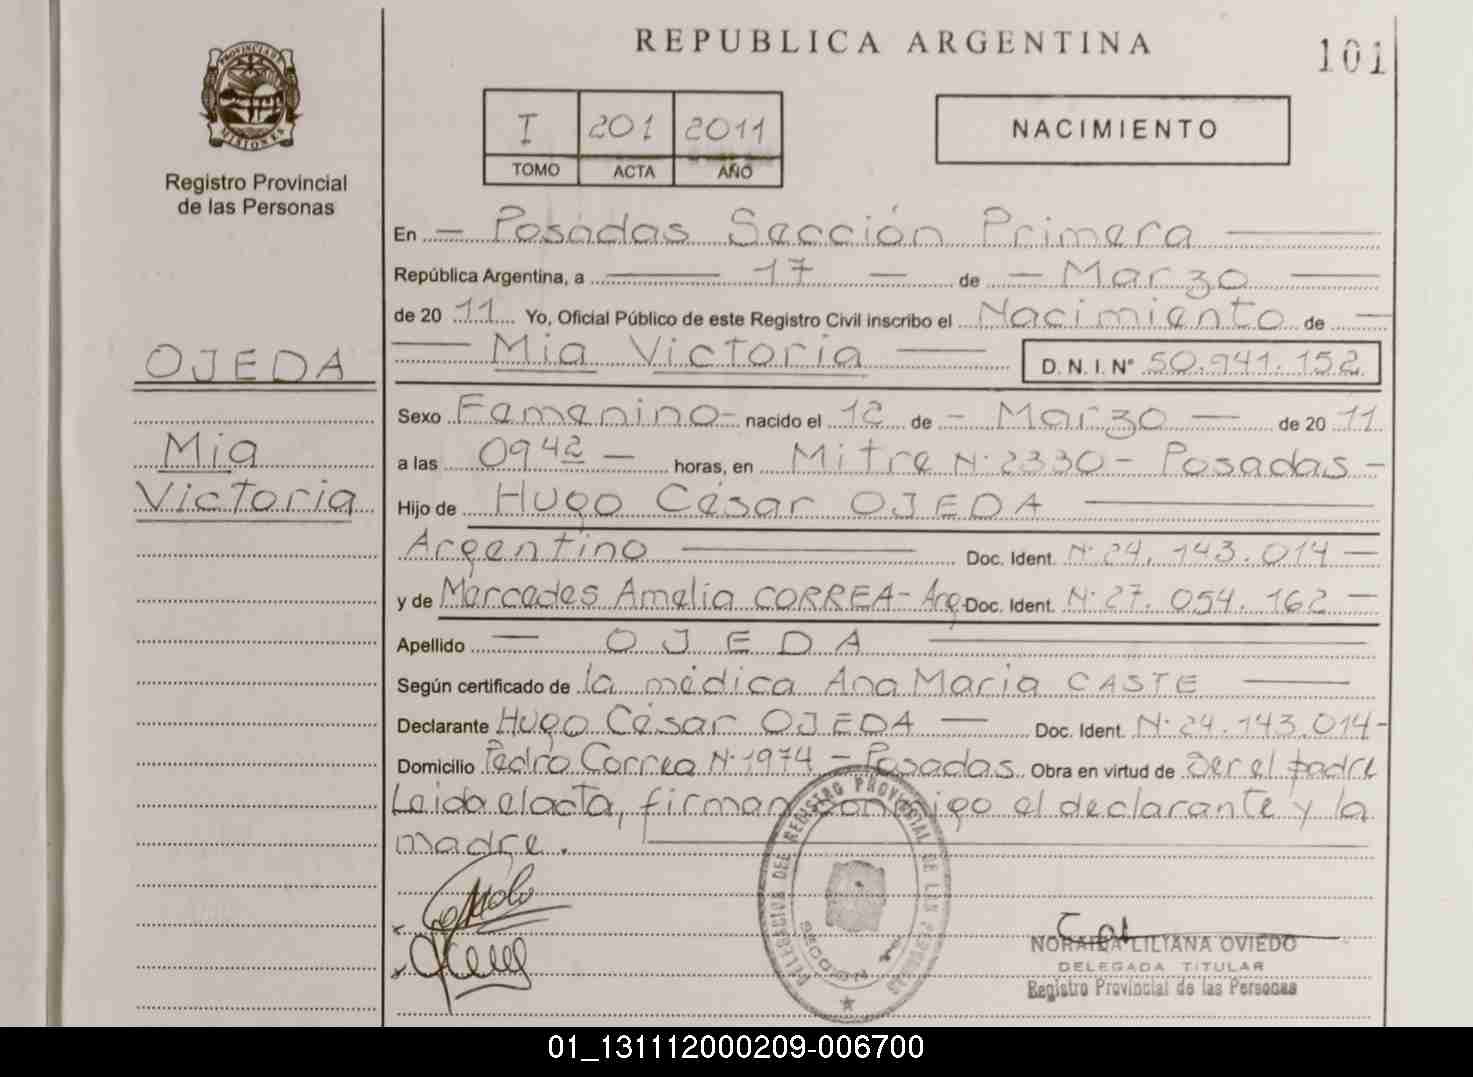 REPUBLICA ARGENTINA
101
PROVINCIA DE MISIONES
Registro Provincial
de las Personas
I 201 2011
TOMO ACTA AÑO
NACIMIENTO
En — Posadas Sección Primera —
República Argentina, a — 17 — de — Marzo —
de 20 11 Yo, Oficial Público de este Registro Civil inscribo el Nacimiento de —
— Mia Victoria — D. N. I. N° 50.941.152
OJEDA
Mia
Victoria
Sexo Femenino - nacido el 12 de - Marzo — de 20 11
a las 09 42 — horas, en Mitre N° 2330 - Posadas -
Hijo de Hugo César OJEDA —
Argentino — Doc. Ident. N° 24.143.014 —
y de Mercedes Amelia CORREA - Arg. Doc. Ident. N° 27.054.162 —
Apellido — OJEDA —
Según certificado de la médica Ana Maria CASTE —
Declarante Hugo César OJEDA — Doc. Ident. N° 24.143.014 -
Domicilio Pedro Correa N° 1974 - Posadas. Obra en virtud de Ser el padre
Leida el acta, firman conmigo el declarante y la
madre.
DELEGACION DEL REGISTRO PROVINCIAL DE LAS PERSONAS
SECCION 1ª
NORAIDA LILIANA OVIEDO
DELEGADA TITULAR
Registro Provincial de las Personas
01_131112000209-006700